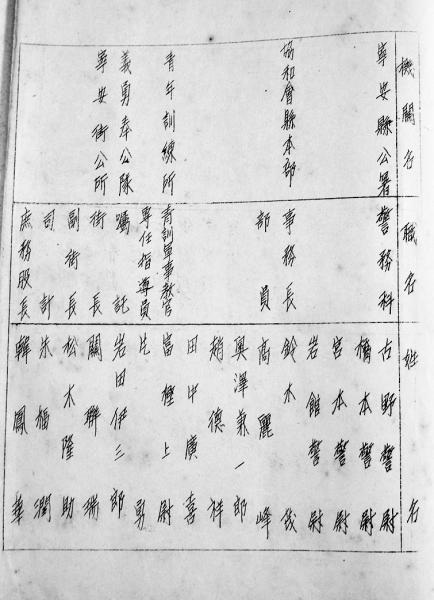 機關名 職名 姓名
寧安縣公署 警務科 古野警尉
橋本警尉
宮本警尉
岩館警尉
協和會縣本部 事務長 鈴木
部員 高麗峰
奧澤兼一郎
趙德祥
田中廣喜
青年訓練所 青訓軍事教官 富樫上尉
專任指導員 片勇
義勇奉公隊 囑託 岩田伊三郎
寧安街公所 街長 關聯瑞
副街長 松木隆助
司計 朱福潤
庶務股長 韓鳳華